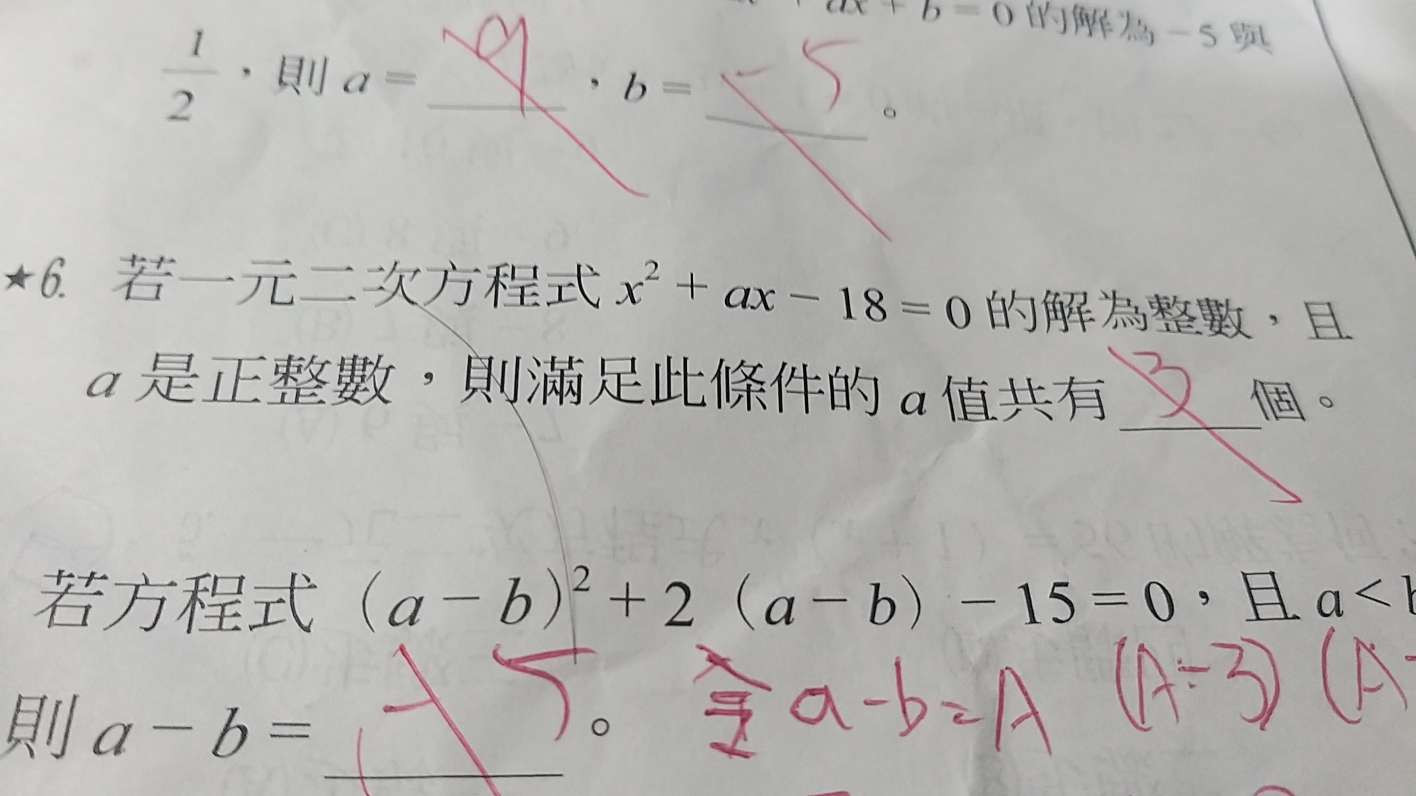 ax + b = 0 的解為 -5 與
1/2，則 a = 9，b = -5。
★6. 若一元二次方程式 x² + ax - 18 = 0 的解為整數，且
a 是正整數，則滿足此條件的 a 值共有 3 個。
若方程式（a - b）² + 2（a - b）- 15 = 0，且 a <
則 a - b = -5。 令 a-b=A (A-3) (A